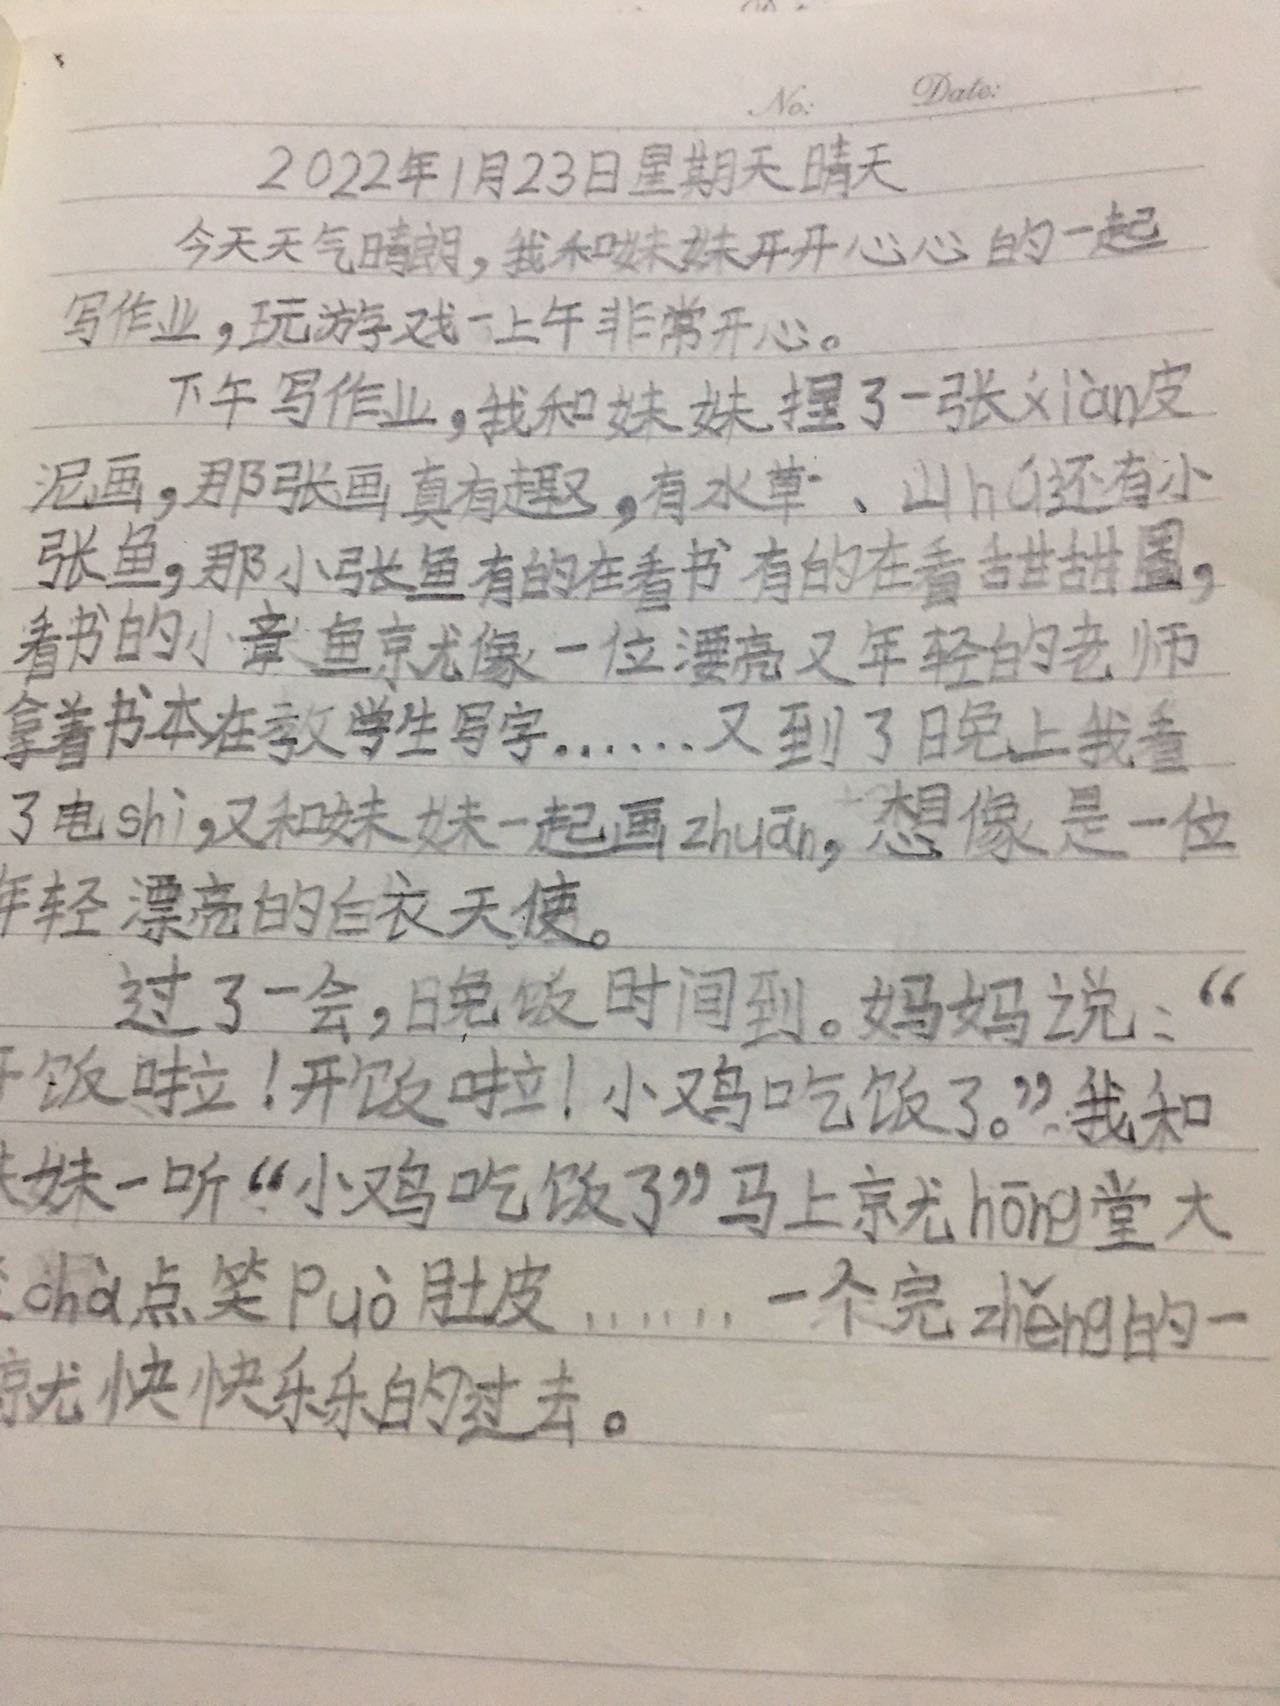 No: Date:
2022年1月23日星期天晴天
今天天气晴朗，我和妹妹开开心心的一起
写作业，玩游戏一上午非常开心。
下午写作业，我和妹妹捏了一张xiàn皮
泥画，那张画真有趣，有水草、山hú还有小
张鱼，那小张鱼有的在看书有的在看甜甜圈，
看书的小章鱼就像一位漂亮又年轻的老师
拿着书本在教学生写字……又到了晚上我看
了电shì，又和妹妹一起画zhuān，想像是一位
年轻漂亮的白衣天使。
过了一会，晚饭时间到。妈妈说：“
开饭啦！开饭啦！小鸡吃饭了。”我和
妹妹一听“小鸡吃饭了”马上就hōng堂大
chà点笑Può肚皮……一个完zhěng的一
就快快乐乐的过去。